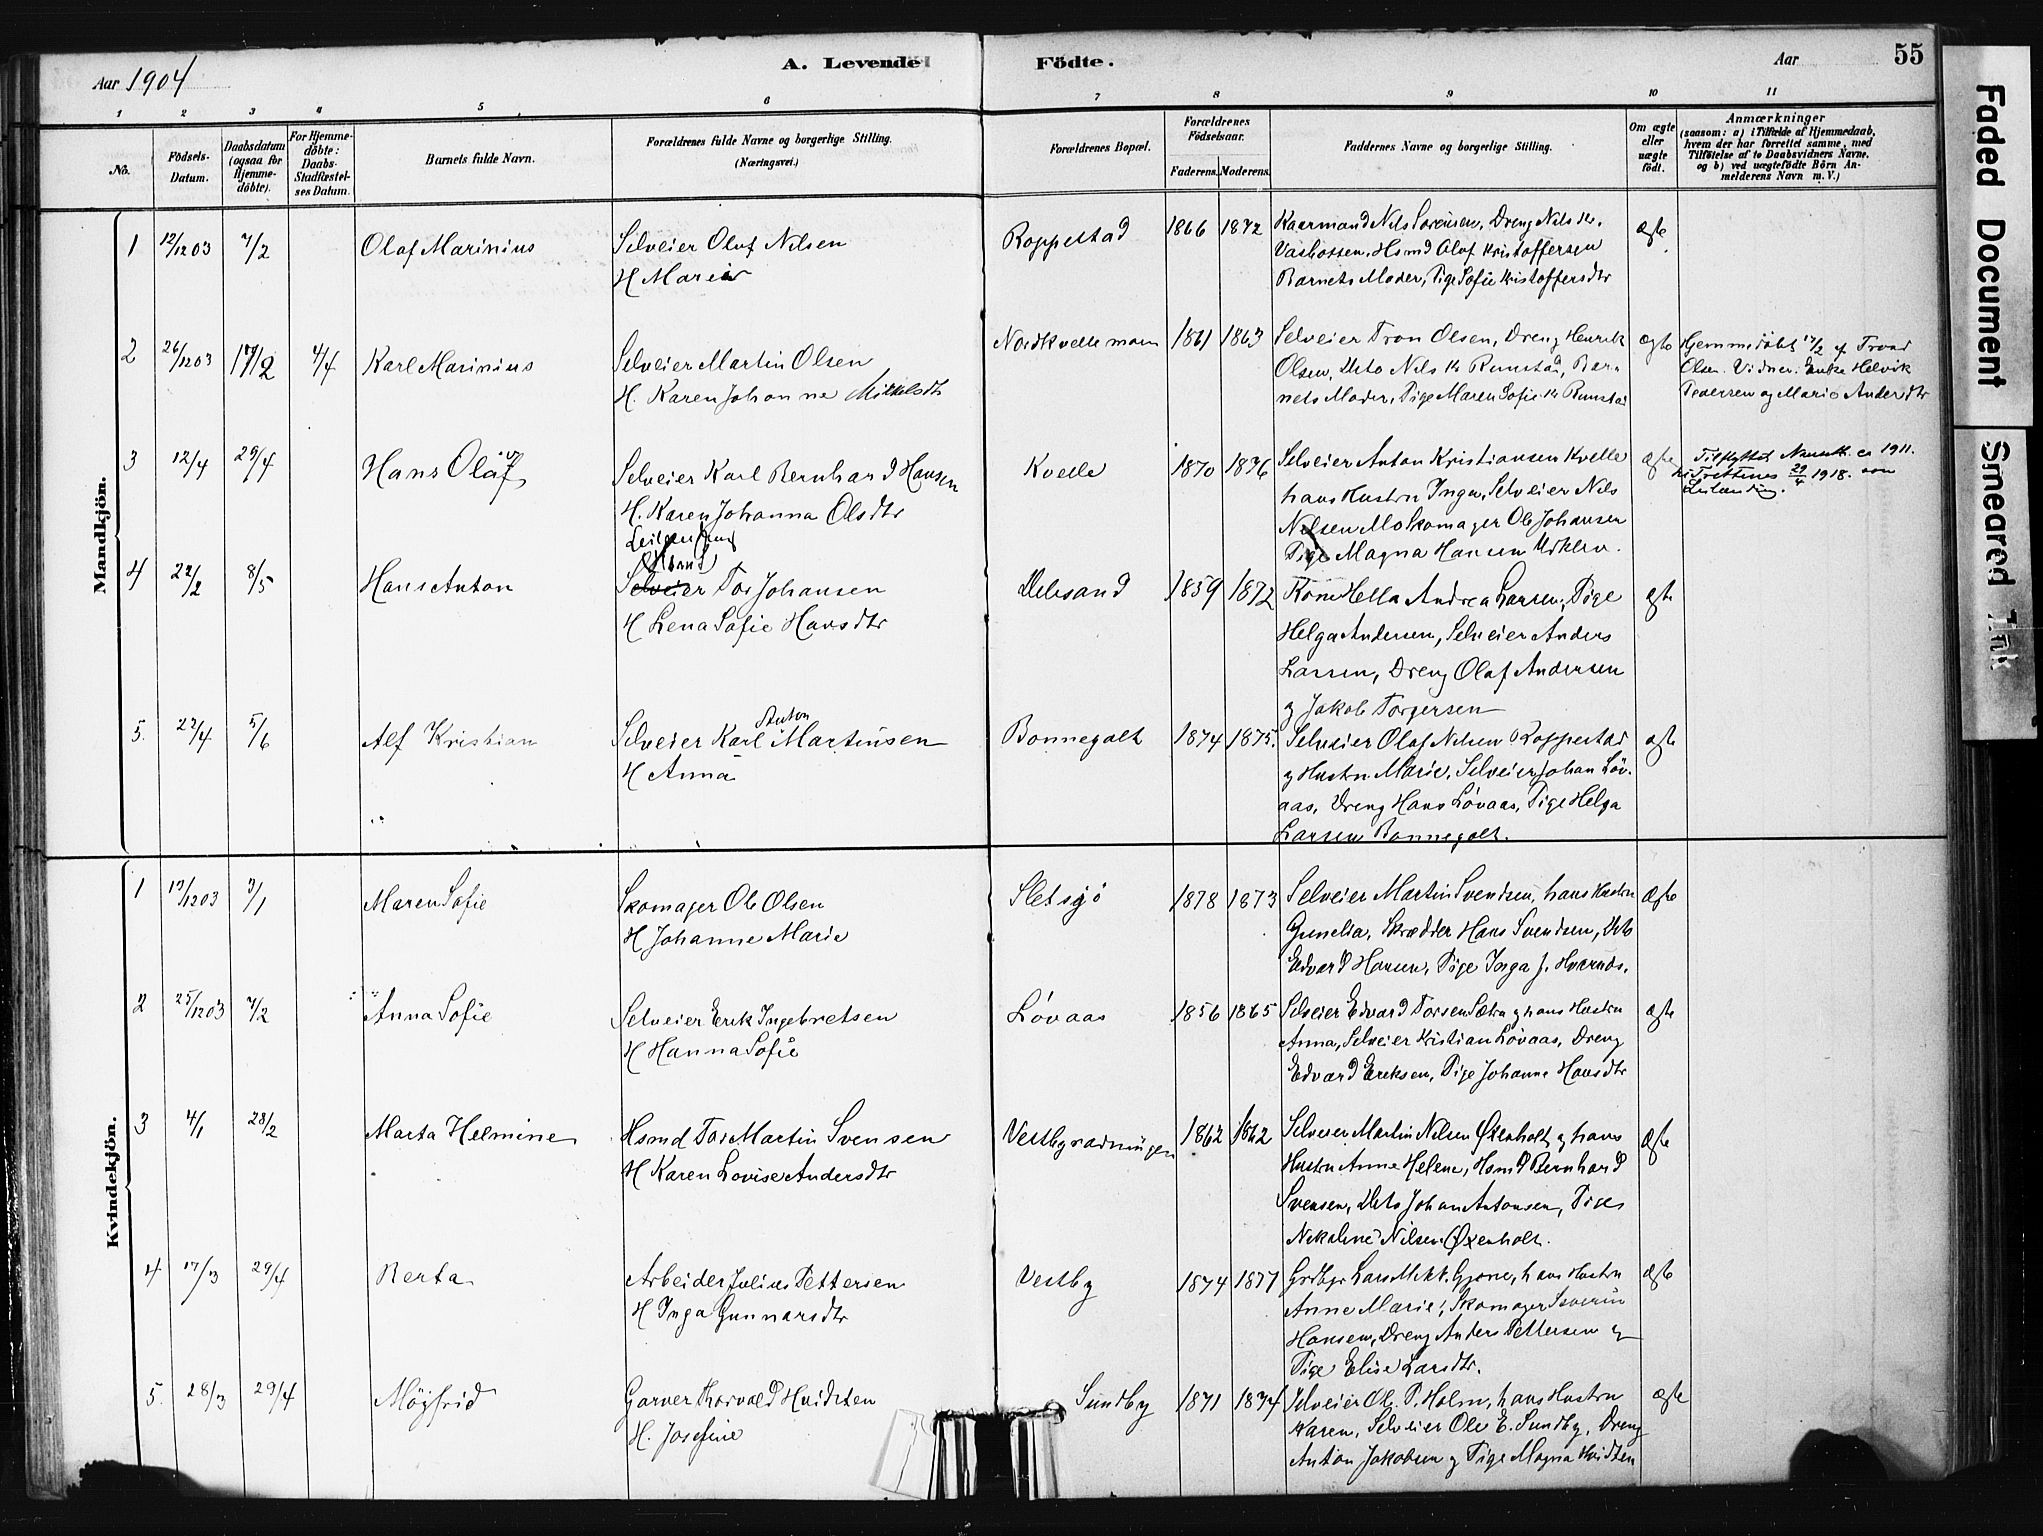 Aar 1904
A. Levende Födte.
Aar
55
1 2 3 4 5 6 7 8 9 10 11
No.
Födsels-Datum.
Daabsdatum (ogsaa for Hjemmedöbte).
For Hjemmedöbte: Daabs-Stadfæstelses Datum.
Barnets fulde Navn.
Forældrenes fulde Navne og borgerlige Stilling.
(Næringsvei.)
Forældrenes Bopæl.
Forældrenes Födselsaar.
Faderens. Moderens.
Faddernes Navne og borgerlige Stilling.
Om ægte eller uægte födt.
Anmærkninger
(saasom: a) i Tilfælde af Hjemmedaab,
hvem der har forrettet samme, med
Tilföielse af to Daabsvidners Navne,
og b) ved uægtefödte Börn An-
melderens Navn m. V.)
Mandkjön.
1 12/12 03 7/2 Olaf Marinius Selveier Olaf Nilsen Roppestad 1866 1872 Kaarmand Nils Sorensen, Dreng Nils
H Marie Hsmd Olaf Kristoffersen ægte
Barnets Moder, Pige Sofie Kristoffersdtr
2 26/12 03 17/2 4/4 Karl Marinius Selveier Martin Olsen 1861 1863 Selveier Tron Olsen, Dreng Henrik ægte Hjemmedøbt 17/2 af Trond
H. Karen Johanne Mikkelsdtr Olsen, Dito Nils Rumstad, Bar- Olsen. Vidner: Enke Helvik
nets Moder, Pige Maren Sofie Rumstad Pedersen og Marie Andersdtr
3 12/4 29/4 Hans Olaf Selveier Karl Bernhard Hansen Kvelle 1870 1876 Selveier Anton Kristiansen Kvelle ægte Tilflyttet ca 1911.
H. Karen Johanna Olsdtr hans Hustru Inga, Selveier Nils 29/4 1918.
Nilsen Mo Skomager Ole Johansen
Pige Magna Hansen
4 22/2 8/5 Hans Anton Selveier Tor Johansen 1859 1872 Kone Hella Andrea Larsen, Pige ægte
H Lena Sofie Hansdtr Helga Andersen, Selveier Anders
Larsen, Dreng Olaf Andersen
og Jakob Torgersen
5. 23/4 5/6 Alf Kristian Selveier Karl Anton Martinsen Bonnegolt 1874 1875. Selveier Olaf Nilsen Roppestad ægte
H Anna og Hustru Marie, Selveier Johan Löv-
aas, Dreng Hans Lövaas, Pige Helga
Larsen Bonnegolt.
Kvindekjön.
1 /12 03 3/1 Maren Sofie Skomager Ole Olsen Sletsjö 1878 1873 Selveier Martin Svendsen, hans Hustru Ægte
H Johanne Marie Gunelia, Skrædder Hans Svendsen, Dito
Edvard Hansen, Pige Inga J.
2 25/12 03 7/2 Anna Sofie Selveier Erik Ingebretsen Lövaas 1856 1865 Selveier Edvard Torsen Sætra og hans Hustru ægte
H Hanna Sofie Anna, Selveier Kristian Lövaas, Dreng
Edvard Eriksen, Pige Johanne Hansdtr
3 4/1 28/2 Marta Helmine Hsmd Tor Martin Svensen Vestbyrødningen 1862 1862 Selveier Martin Nilsen Øxenholt og hans Ægte
H Karen Lovise Andersdtr Hustru Anne Helene, Hsmd Bernhard
Svensen, Dito Johan Antonsen, Pige
Nikoline Nilsen Øxenholt.
4 17/3 29/4 Berta Arbeider Julius Pettersen Vestby 1874 1877 Grdbgr Lars Mikk. Gjone, hans Hustru Ægte
H Inga Gunnarsdtr Anne Marie, Skomager Severin
Hansen, Dreng Anders Pettersen og
Pige Elise Larsdtr.
5. 28/3 29/4 Möyfrid Garver Thorvald Hvidsten Sundby 1871 1874 Selveier Ol. P. Holm, hans Hustru ægte
H. Josefine Karen, Selveier Ole E. Sundby, Dreng
Anton Jakobsen og Pige Magna Hvidsten
Faded Document
Smeared Ink.